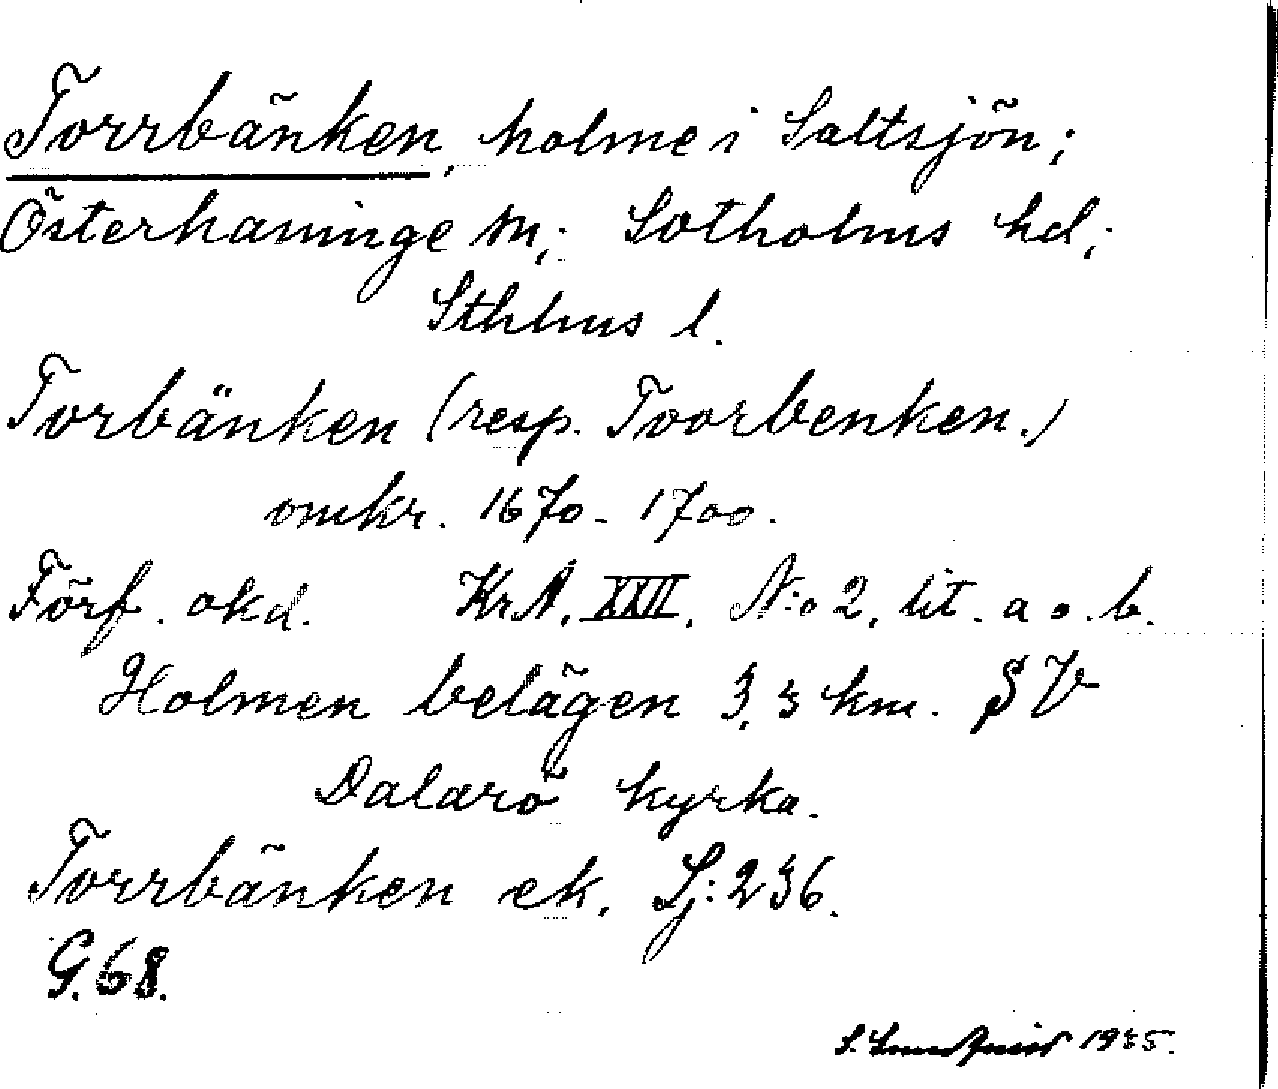 Torrbänken, holme i Saltsjön;
Österhaninge sn; Sotholms hd;
Sthlms l.
Torbänken (resp. Toorbenken.)
omkr. 1670-1700.
Förf. okd. KrA. XXII. N:o 2. lit. a o. b.
Holmen belägen 3,3 km. SV
Dalarö kyrka.
Torrbänken ek. Lj: 236.
G. 68.
S. 1935.